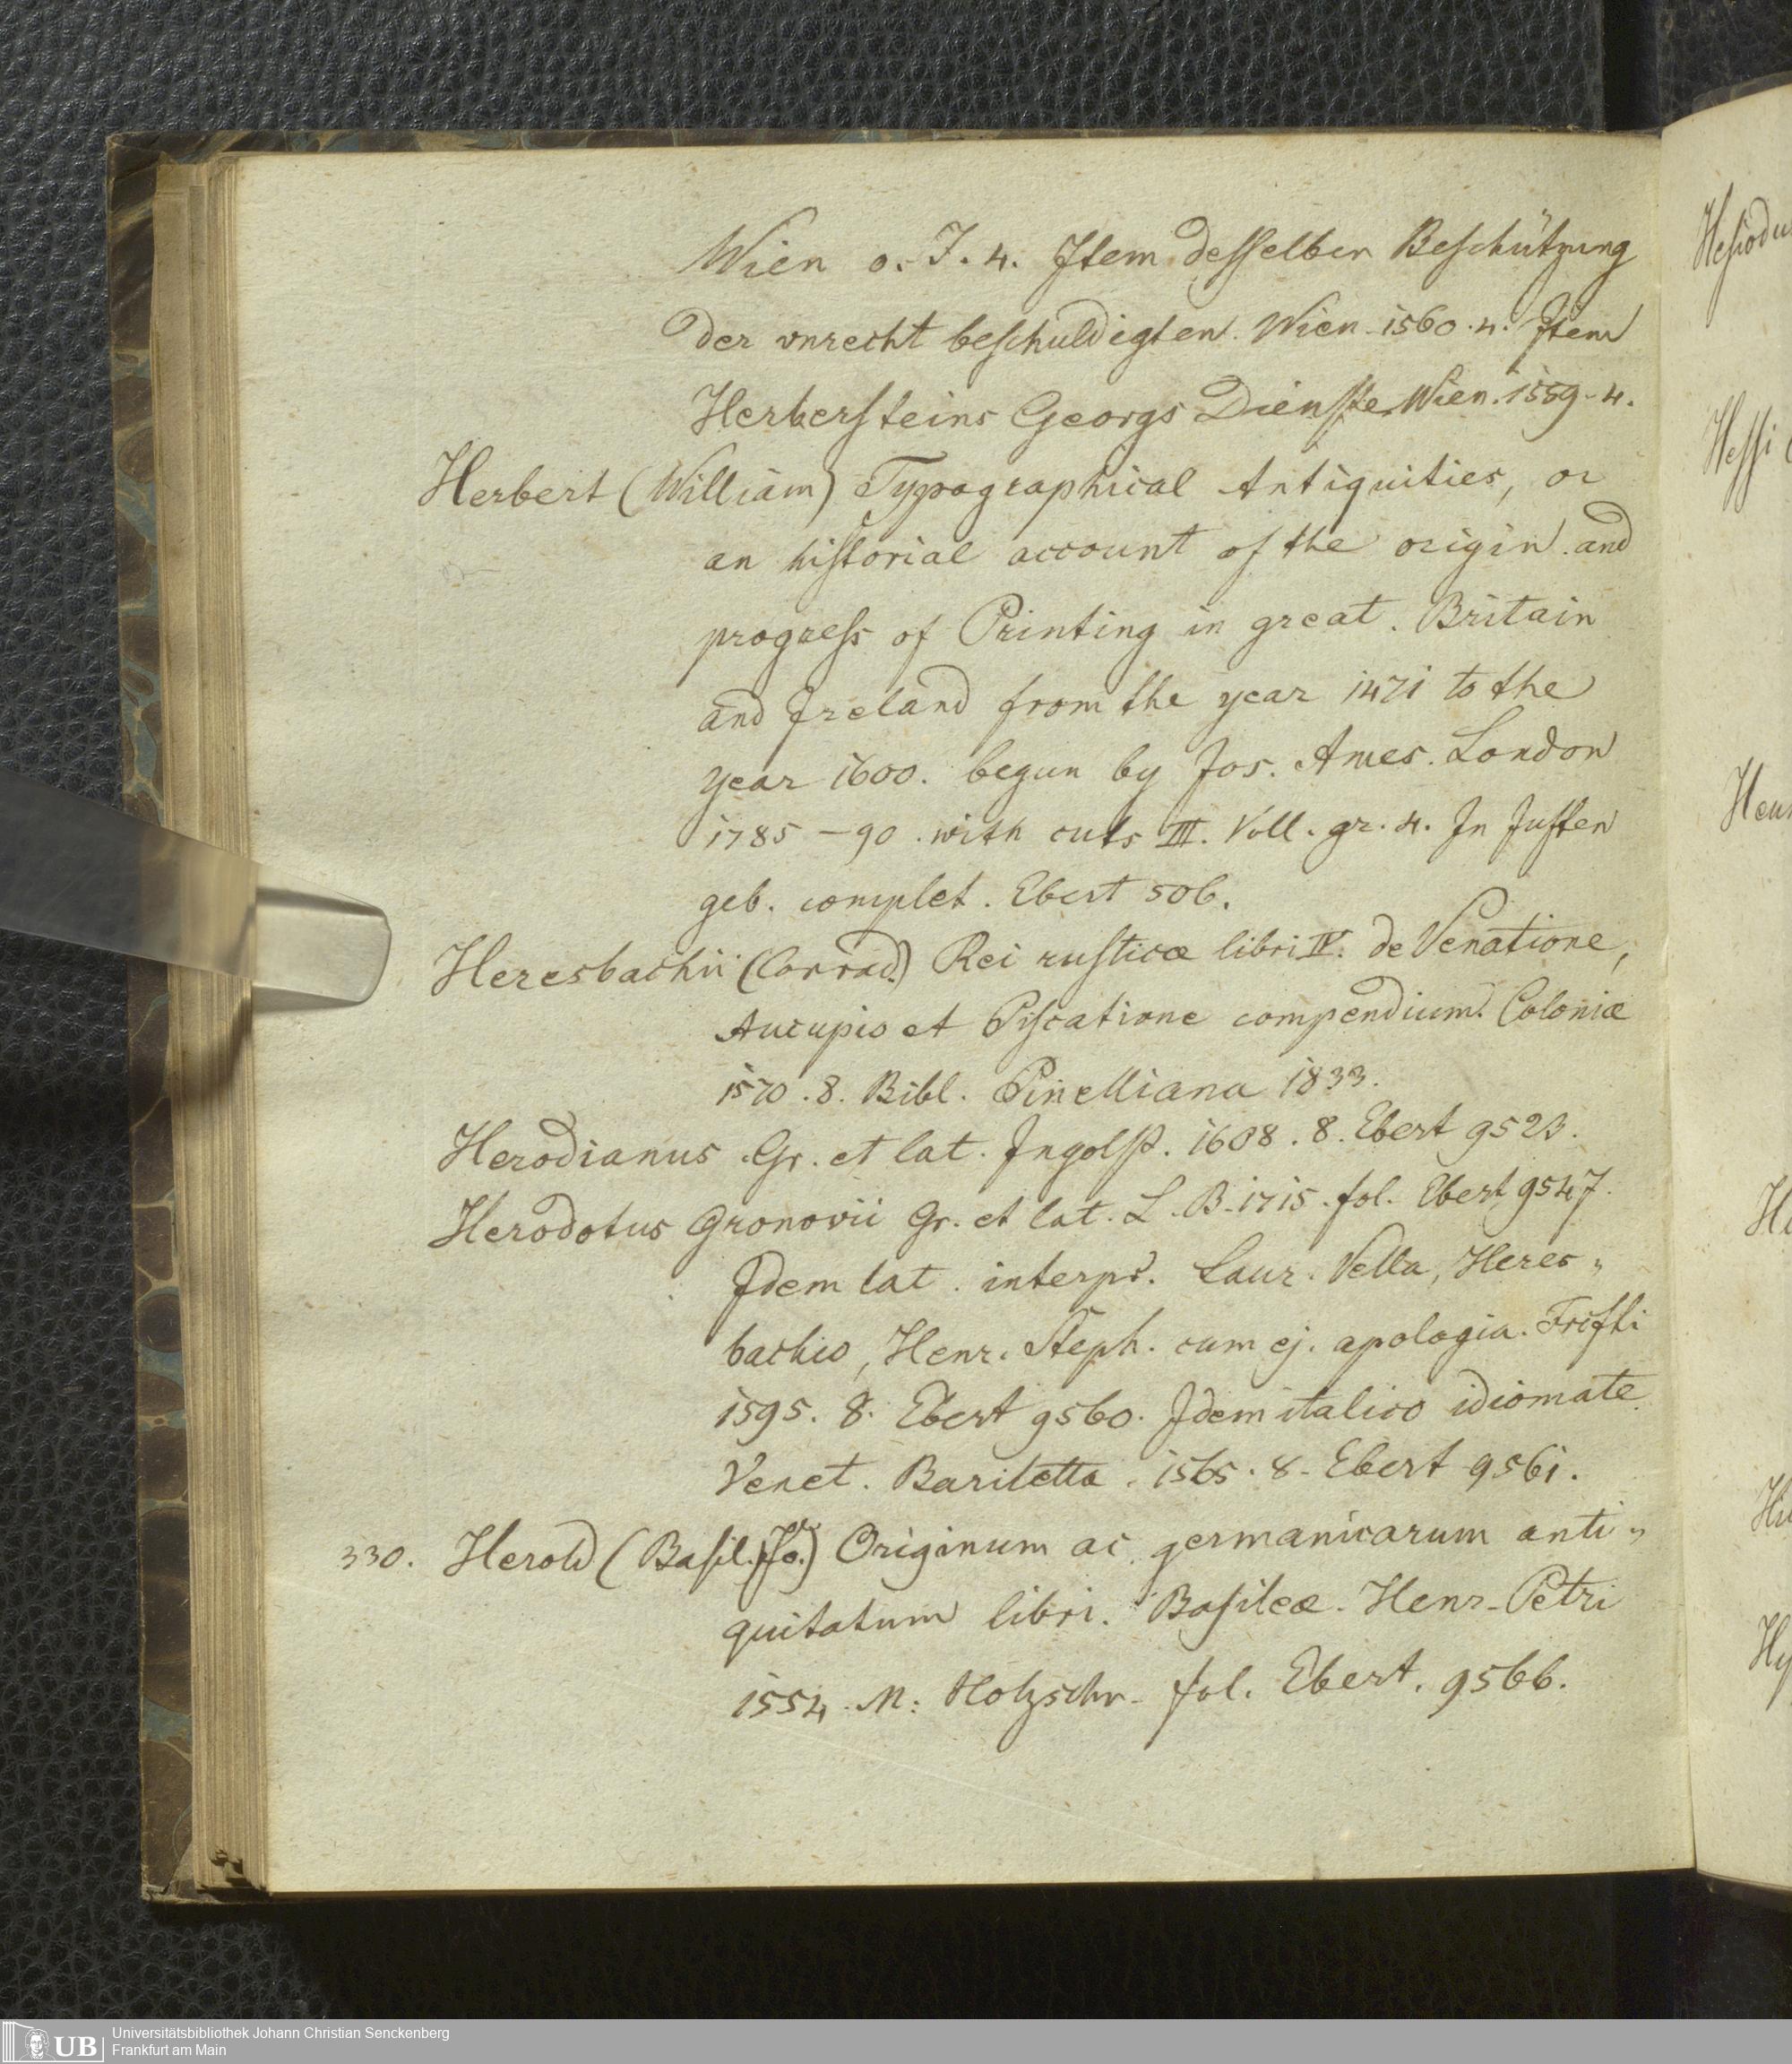 Wien o. J. 4. Item desselben Beschützung
der vnrecht beschuldigten. Wien 1560. 4. Item
Herbersteins Georgs Dienste, Wien. 1559. 4.
Herbert (William) Typographical Antiquities, or
an historial account of the origin and
progress of Printing in great. Britain
and Ireland from the year 1471 to the
year 1600. begun by Jos. Ames. London
1785 - 90. with cuts III. Voll. gr. 4. In Juften
geb. complet. Ebert 506.
Heresbachii (Conrad.) Rei rusticæ libri IV. de Venatione,
Aucupio et Piscatione compendium. Coloniæ
1570. 8. Bibl. Pinelliana 1833.
Herodianus Gr. et lat. Ingolst. 1608. 8. Ebert 9523.
Herodotus Gronovii Gr. et lat. L. B. 1715. fol. Ebert 9547.
Idem lat. interpr. Laur. Vella, Heres„
bachio, Henr. Steph. cum ej. apologia. Frcfti
1595. 8. Ebert 9560. Idem italico idiomate
Venet. Bariletta. 1565. 8. Ebert 9561.
330. Herold (Basil. Jo.) Originum ac germanicarum anti„
quitatum libri. Basileæ. Henr. Petri
1554. M: Holzschn. fol. Ebert. 9566.
Hessi
UB
Universitätsbibliothek Johann Christian Senckenberg
Frankfurt am Main